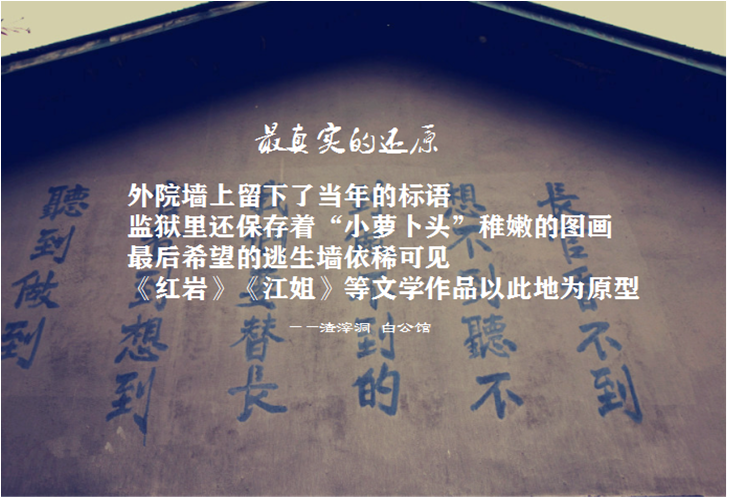 最真实的还原
外院墙上留下了当年的标语
监狱里还保存着“小萝卜头”稚嫩的图画
最后希望的逃生墙依稀可见
《红岩》《江姐》等文学作品以此地为原型
——渣滓洞 白公馆
長官看不到
想不到聽不
到的
我們要替長
到想到
聽到做到